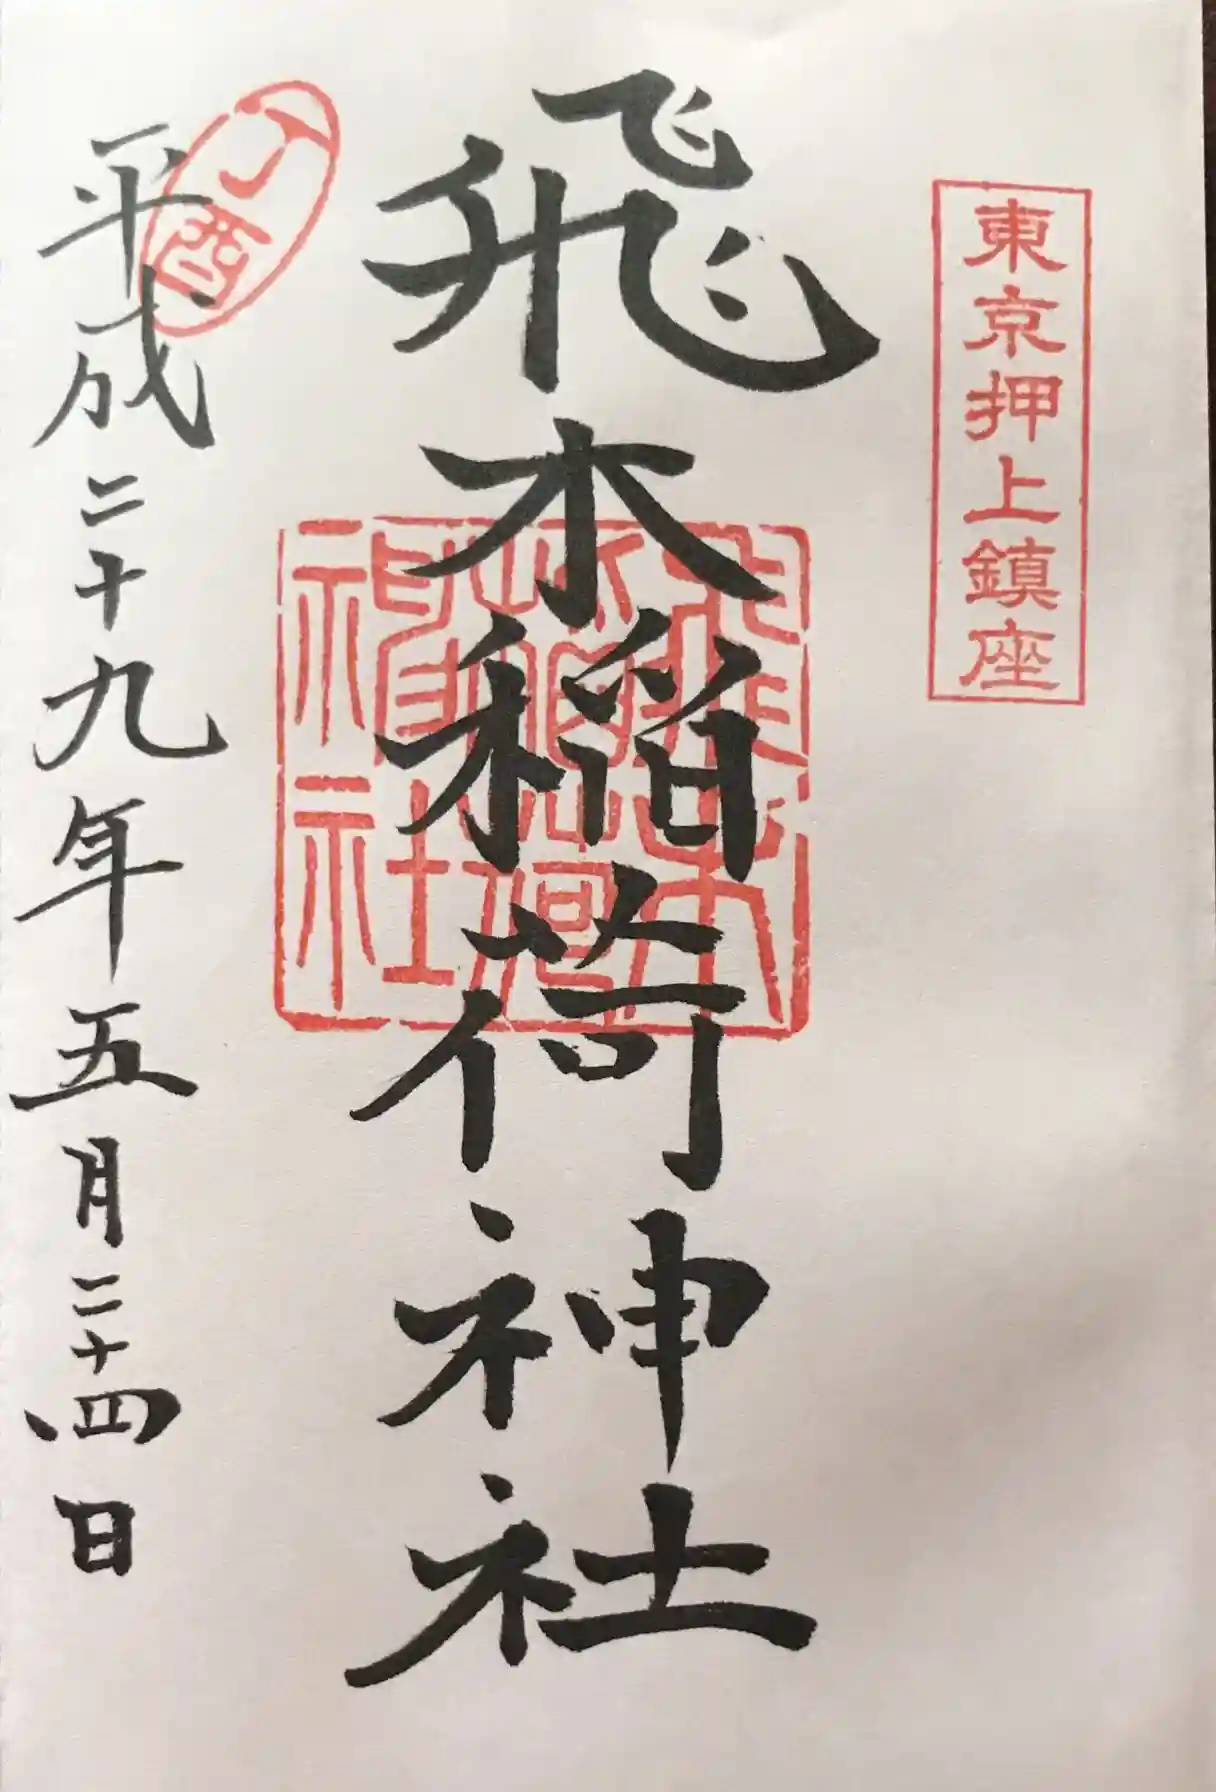 東京押上鎮座
飛木稲荷神社
飛木稲荷神社
丁酉
平成二十九年五月二十四日